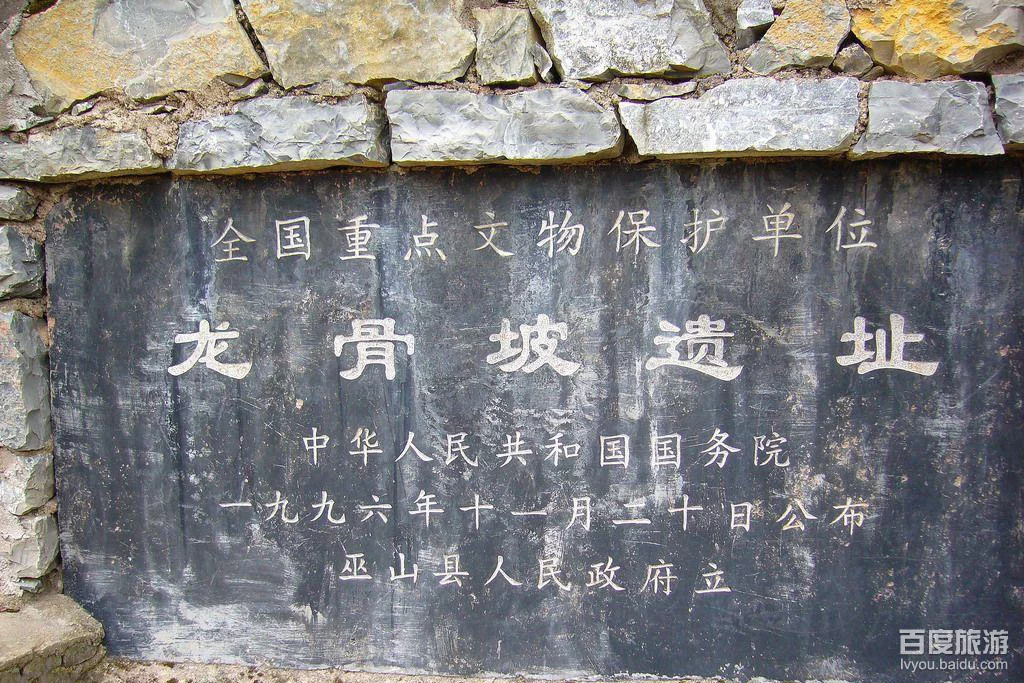 全国重点文物保护单位
龙骨坡遗址
中华人民共和国国务院
一九九六年十一月二十日公布
巫山县人民政府立
百度旅游
lvyou.baidu.com